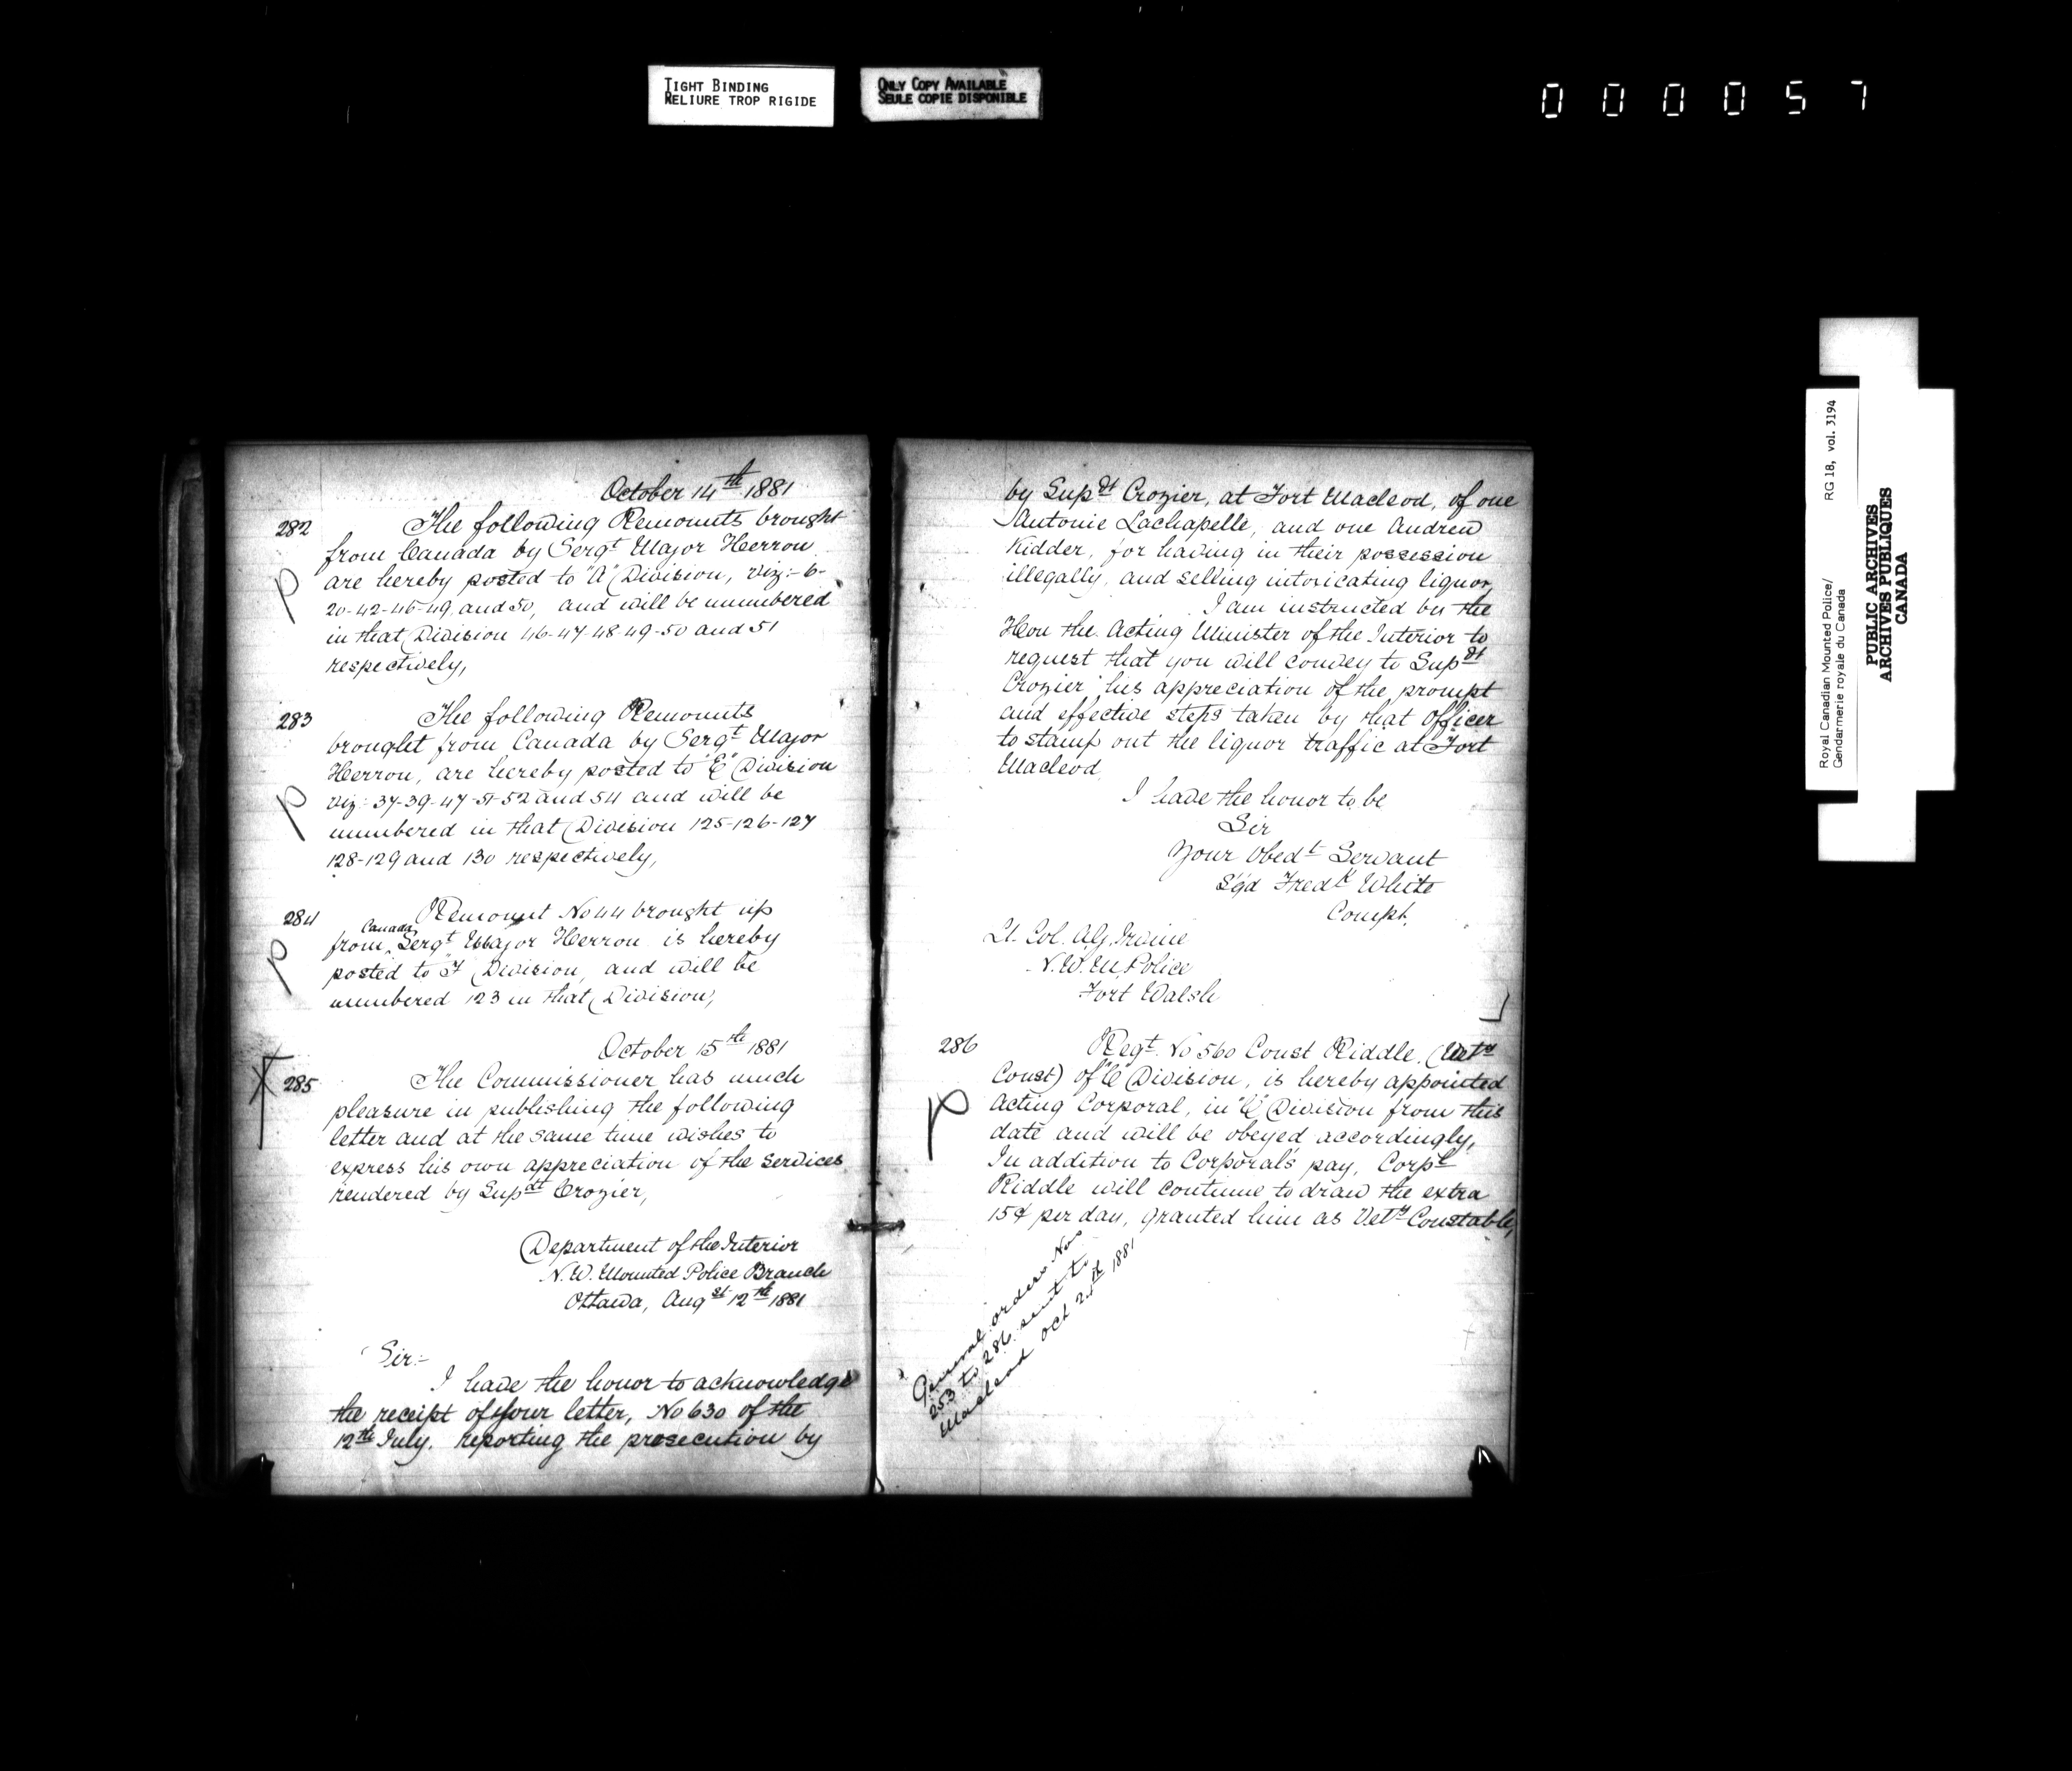 TIGHT BINDING
RELIURE TROP RIGIDE
ONLY COPY AVAILABLE
SEULE COPIE DISPONIBLE
000057
October 14th 1881
282 The following Remounts brought
from Canada by Sergt Major Herron
are hereby posted to "A" Division, viz:- 6-
20-42-46-49, and 50, and will be numbered
in that Division 46-47-48-49-50 and 51
respectively,
P
283 The following Remounts
brought from Canada by Sergt Major
Herron, are hereby posted to "E" Division
viz: 37-39-47-51-52 and 54 and will be
numbered in that Division 125-126-127
128-129 and 130 respectively,
P
284 Remount No 44 brought up
Canada
from Sergt Major Herron is hereby
posted to "F" Division, and will be
numbered 123 in that Division,
P
October 15th 1881
285 The Commissioner has much
pleasure in publishing the following
letter and at the same time wishes to
express his own appreciation of the services
rendered by Supdt Crozier,
Department of the Interior
N.W. Mounted Police Branch
Ottawa, Augst 12th 1881
Sir:-
I have the honor to acknowledge
the receipt of your letter, No 630 of the
12th July. reporting the prosecution by
by Supdt Crozier, at Fort Macleod, of one
Antonie Lachapelle, and one Andrew
Kidder, for having in their possession
illegally, and selling intoxicating liquor,
I am instructed by the
Hon the Acting Minister of the Interior to
request that you will convey to Supdt
Crozier his appreciation of the prompt
and effective steps taken by that Officer
to stamp out the liquor traffic at Fort
Macleod,
I have the honor to be
Sir
Your Obedt Servant
S'gd Fredk White
Compt,
Lt. Col. A.G. Irvine
N.W.M. Police
Fort Walsh
286 Regt. No 560 Const Riddle. (Vety
Const) of Division, is hereby appointed
Acting Corporal, in Division from this
date and will be obeyed accordingly,
In addition to Corporal's pay, Corpl
Riddle will continue to draw the extra
15¢ per day, granted him as Vety Constable,
P
General orders Nos
253 to 286 sent to
Macleod Oct 1881
Royal Canadian Mounted Police/
Gendarmerie royale du Canada
RG 18, vol. 3194
PUBLIC ARCHIVES
ARCHIVES PUBLIQUES
CANADA